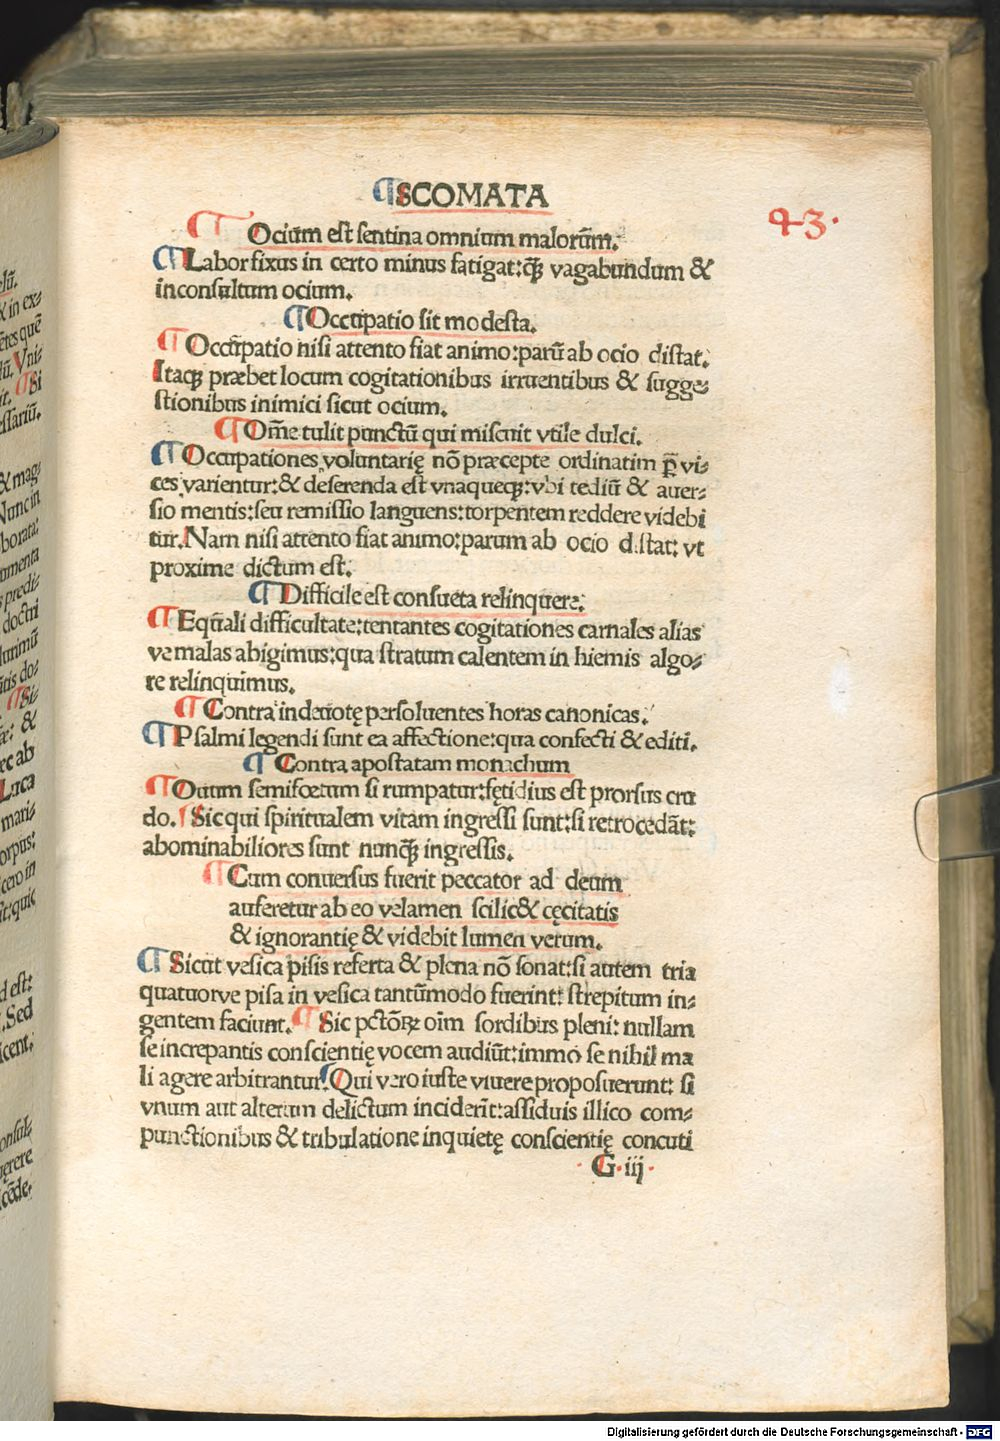 ¶SCOMATA
43.
¶ Ocium est sentina omnium malorũm.
¶Labor fixus in certo minus fatigat:q̃ꝫ vagabundum &
inconsultum ocium.
¶Occupatio sit modesta.
¶Occũpatio nisi attento fiat animo:parũ ab ocio distat.
Itaqꝫ præbet locum cogitationibus irruentibus & sugge⸗
stionibus inimici sicut ocium.
¶Om̃e tulit punctũ qui miscuit vtile dulci.
¶Occupationes voluntarię nõ præcepte ordinatim p̱ vi⸗
ces varientur:& deserenda est vnaqueqꝫ:vbi tediũ & auer⸗
sio mentis:seu remissio languens:torpentem reddere videbi
tur.Nam nisi attento fiat animo:parum ab ocio distat: vt
proxime dictum est.
¶Difficile est consueta relinquere.
¶Equãli difficultate:tentantes cogitationes carnales alias
ve malas abigimus:qua stratum calentem in hiemis algo⸗
re relinquimus.
¶Contra indeuotę persoluentes horas canonicas.
¶Psalmi legendi sunt ea affectione:qua confecti & editi.
¶Contra apostatam monachum
¶Ouum semifœtum si rumpatur:fętidius est prorsus cru
do.¶Sic qui spiritualem vitam ingressi sunt:si retrocedãt:
abominabiliores sunt nunq̃ꝫ ingressis.
¶Cum conuersus fuerit peccator ad deum
auferetur ab eo velamen scilic& cęcitatis
& ignorantię & videbit lumen verum.
¶Sicut vesica pisis referta & plena nõ sonat:si autem tria
quatuorve pisa in vesica tantũmodo fuerint: strepitum in⸗
gentem faciunt.¶Sic pctõꝝ oĩm sordibus pleni: nullam
se increpantis conscientię vocem audiũt:immo se nihil ma
li agere arbitrantur.¶Qui vero iuste viuere proposuerunt: si
vnum aut alterum delictum inciderĩt:assiduis illico com⸗
punctionibus & tribulatione inquietę conscientię concuti
G.iij.
Digitalisierung gefördert durch die Deutsche Forschungsgemeinschaft - DFG